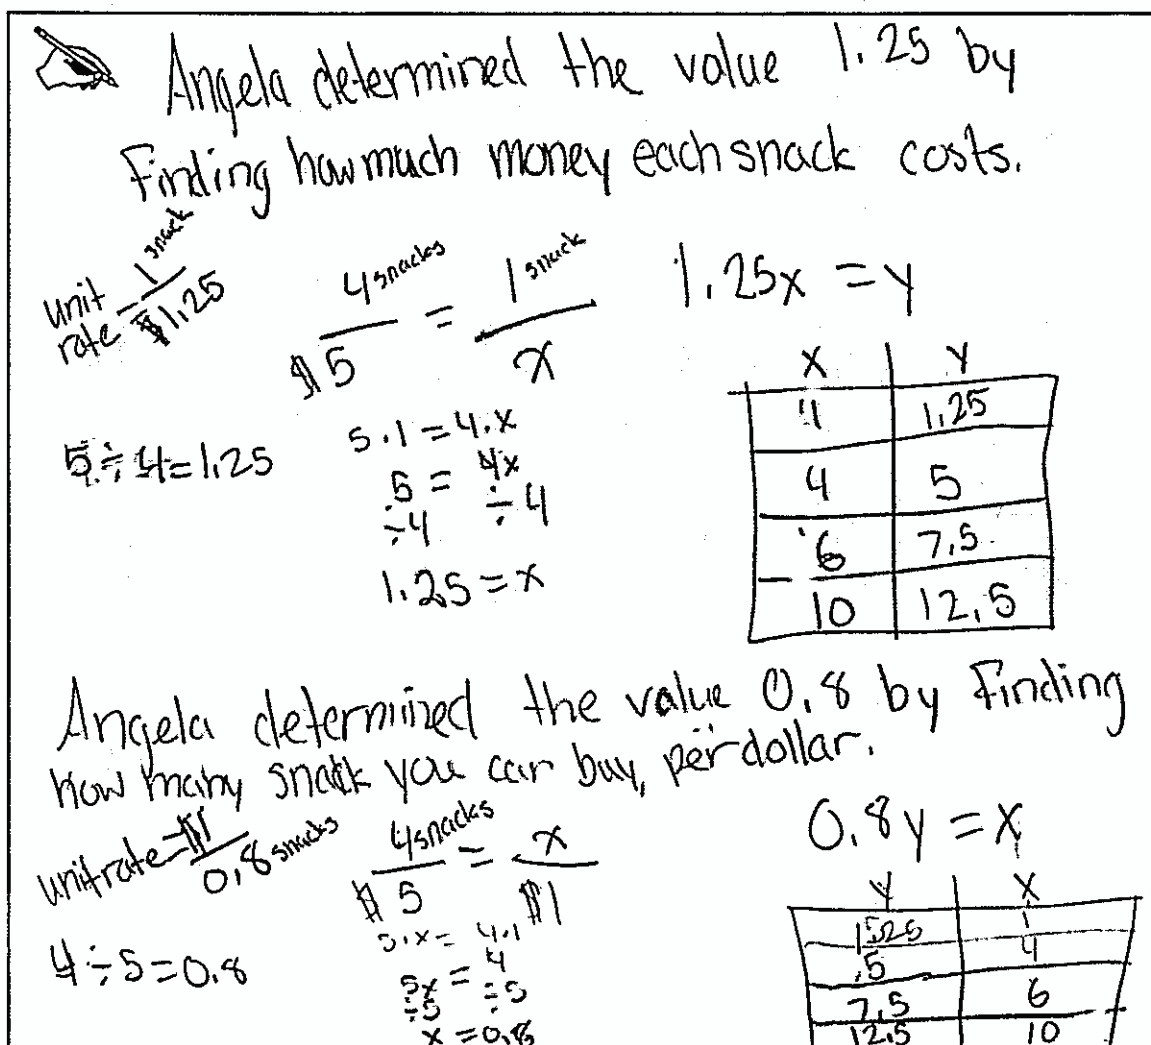 Angela determined the value 1.25 by
Finding how much money each snack costs.
unit rate = 1 snack / $1.25
4 snacks / $5 = 1 snack / x
1.25x = y
5 ÷ 4 = 1.25
5 · 1 = 4 · x
5 = 4x
÷4 ÷4
1.25 = x
x y
1 1.25
4 5
6 7.5
10 12.5
Angela determined the value 0.8 by Finding
how many snack you can buy, per dollar.
unit rate = $1 / 0.8 snacks
4 snacks / $5 = x / $1
0.8y = x
4 ÷ 5 = 0.8
5 · x = 4 · 1
5x = 4
÷5 ÷5
x = 0.8
y x
1.25 1
5 4
7.5 6
12.5 10